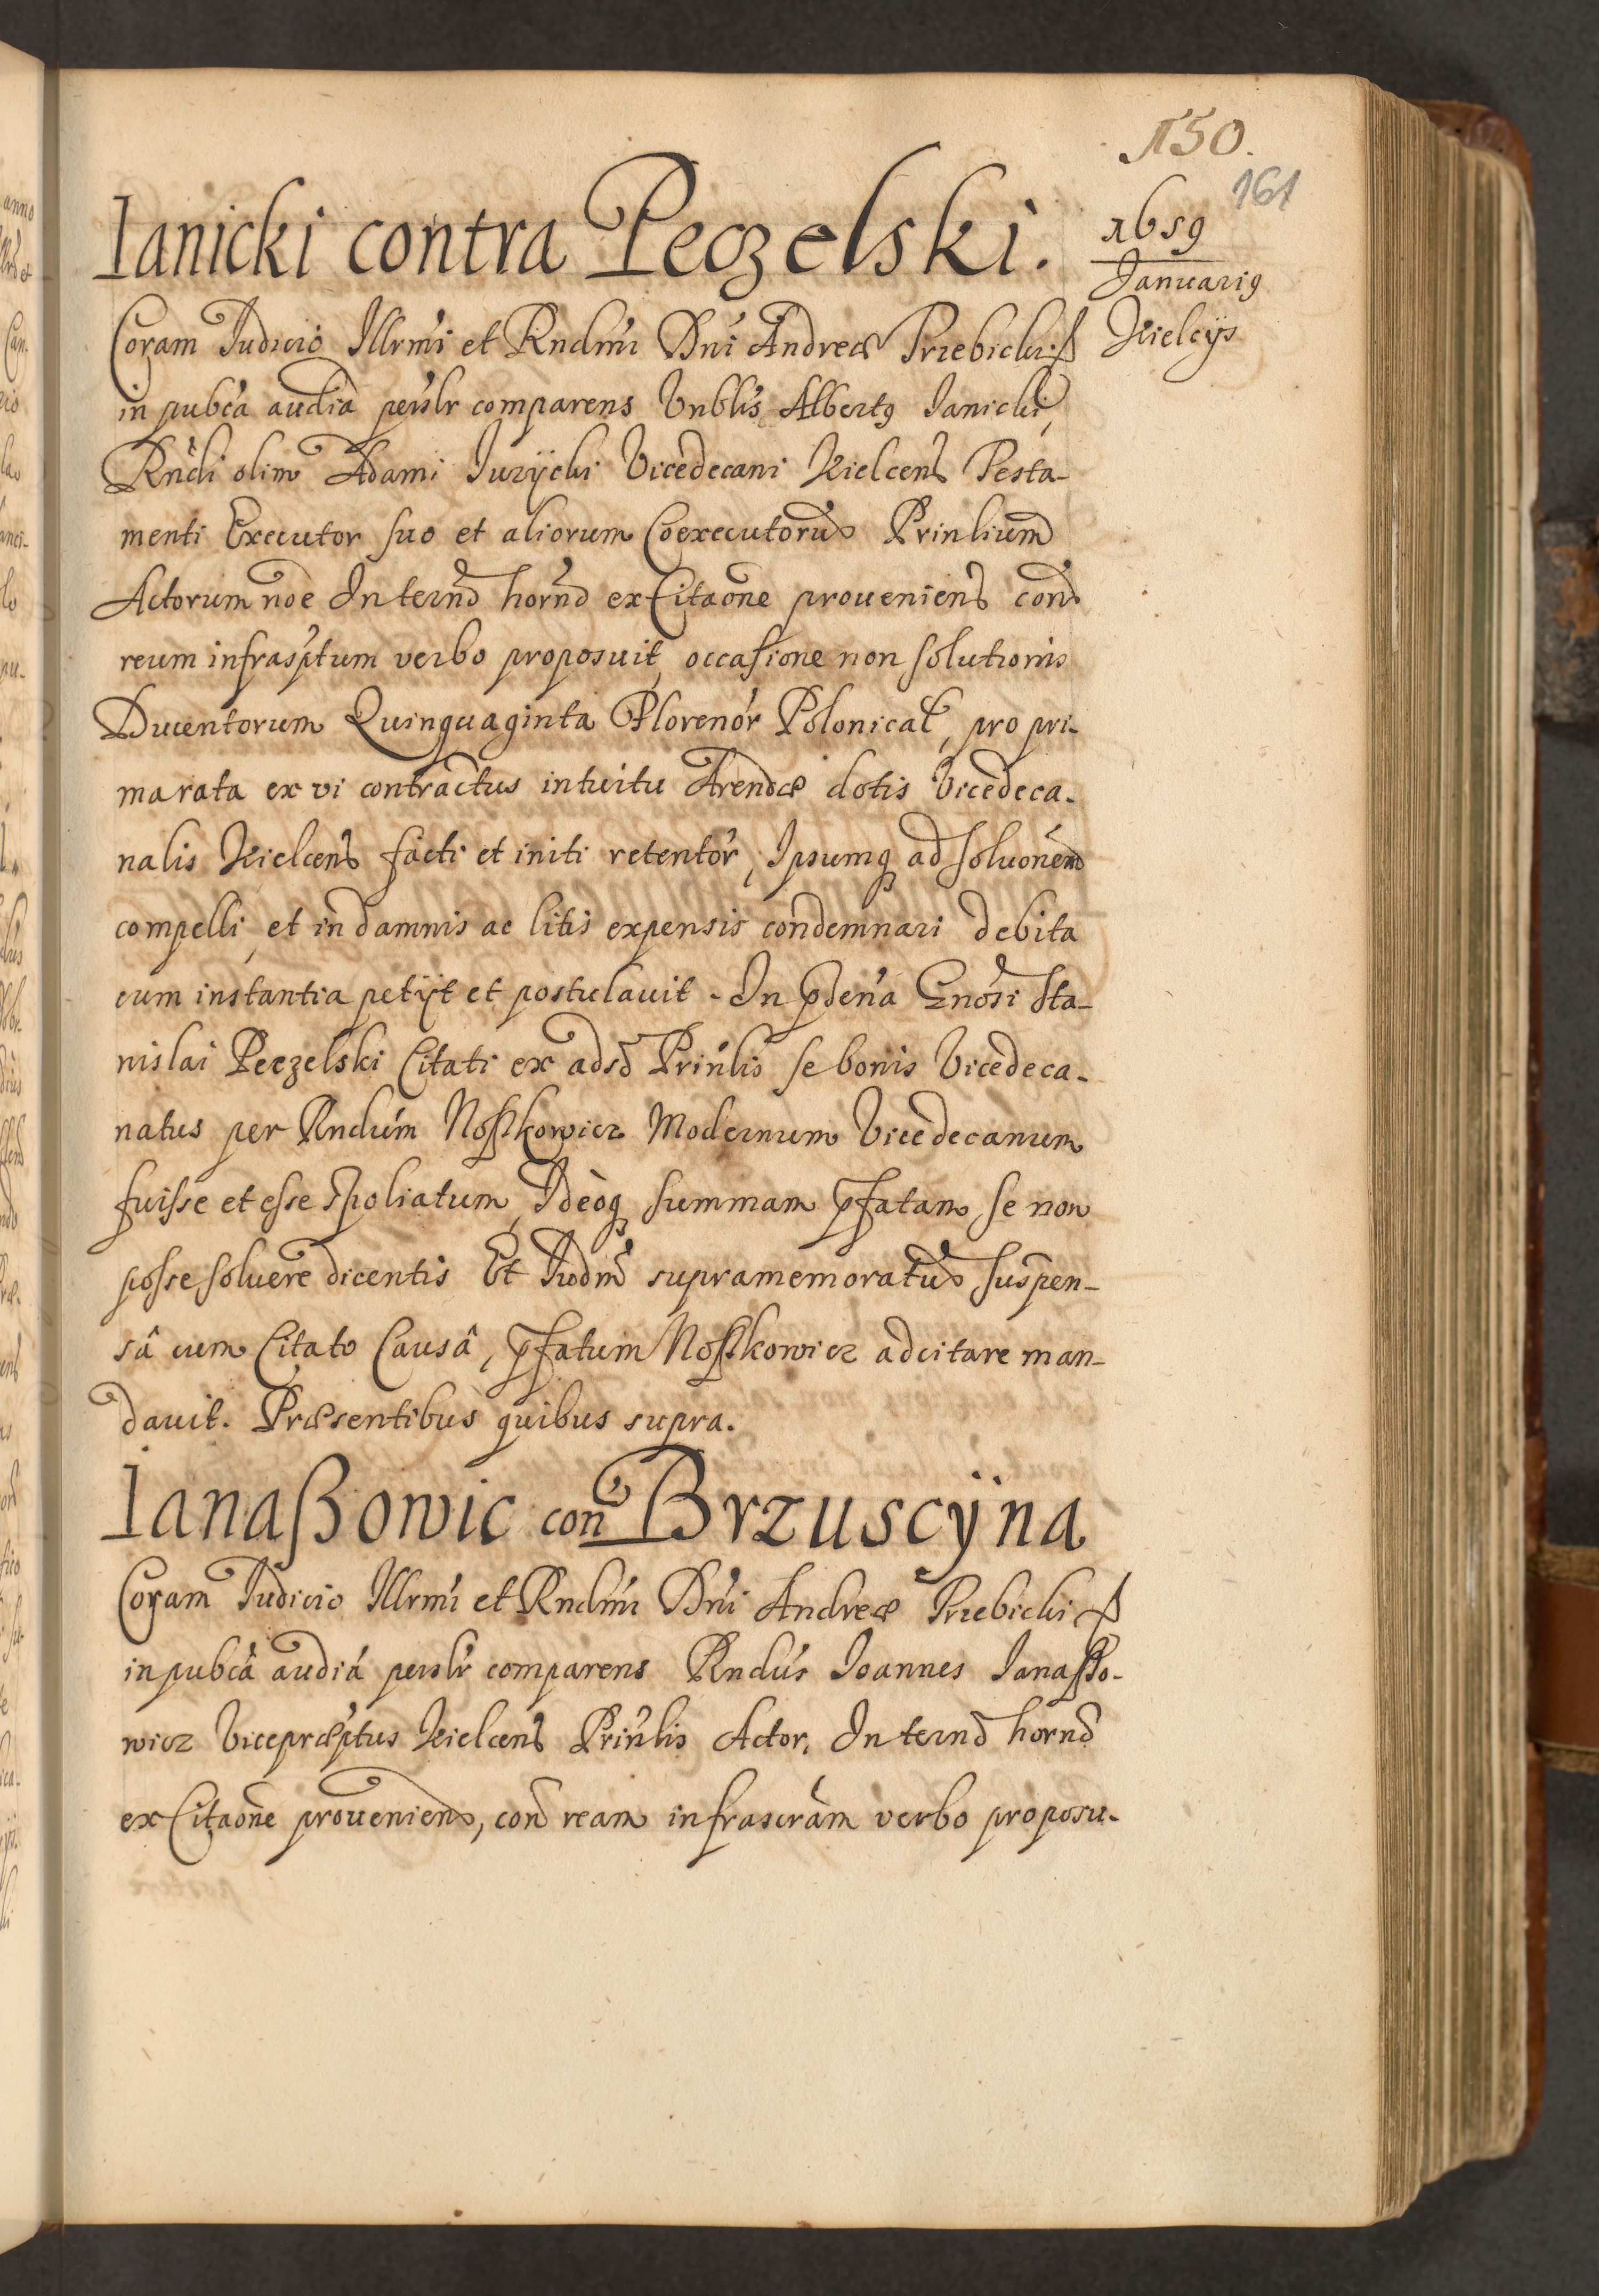 150.
161
1659
Januarig
Kielcÿs
Ianicki contra Peczelski.
Coram Iudicio Illrmi et Rndmi Dni Andreæ Trzebicki
in pubca audia perslr comparens Vnblis Albertg Ianicki,
Rndi olim Adami Iurÿcki Vicedecani Kielcens Testa-
menti Executor suo et aliorum Coexecutorum Prinlium
Actorum noe In termo horno ex Citaone proueniens con
reum infrasptum verbo proposuit, occasione non solutionis
Ducentorum Quinquaginta Florenor Polonical, pro pri-
ma rata ex vi contractus intuitu Arendæ dotis Vicedeca-
nalis Kielcens facti et initi retentor, Ipsumq ad soluonem
compelli, et in damnis ac litis expensis condemnari debita
cum instantia petÿt et postulauit. In pdena Gnosi Sta-
nislai Peczelski Citati ex adso Prinlis se bonis Vicedeca-
natus per Rndum Noszkowicz Modernum Vicedecanum
fuisse et esse spoliatum, Ideoq summam pfatam se non
posse soluere dicentis Et Iudm supramemoratum suspen-
sâ cum Citato Causâ, pfatum Noszkowicz adcitare man-
dauit. Præsentibus quibus supra.
Ianaßowic con Brzuscÿna
Coram Iudicio Illrmi et Rndmi Dni Andreæ Trzebicki
in pubca audia perslr comparens Rndus Ioannes Ianaßo-
wicz Vicepræptus Kielcens Prinlis Actor, In termo horno
ex Citaone proueniens, con ream infrascram verbo proposu-